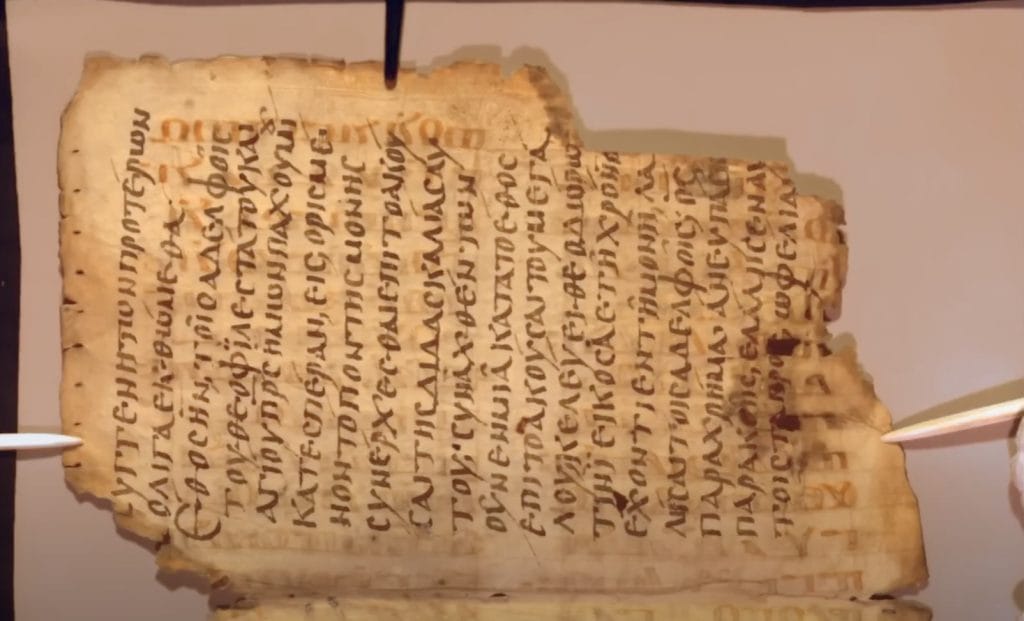 ϲυγγενηιτωνπροτερων
ολιγαεκθωμεθα·
Εθοϲην, τοιϲαδελφοιϲ
τουθεοφιλεϲτατουκαι
αγιουπρϲημωνπαχουμι
κατεϲπεραν, ειϲοριϲμε
νοντοποντηϲμονηϲ
ϲυνερχεϲθαιεπιτοακου
ϲαιτηϲδιδαϲκαλιαϲαυ
του· ϲυναχθεντων
ουνενμιακατατοεθοϲ
επιτοακουϲαιτουμεγα
λου, κελευειθεοδωρω
τινιεικοϲαετηχρονον
εχοντιεντημονη, λα
ληϲαιτοιϲαδελφοιϲ· οϲ
παραχρημαανευπαϲ
παρακοηϲ, ελαληϲεναυ
τοιϲταπροϲωφελιαν